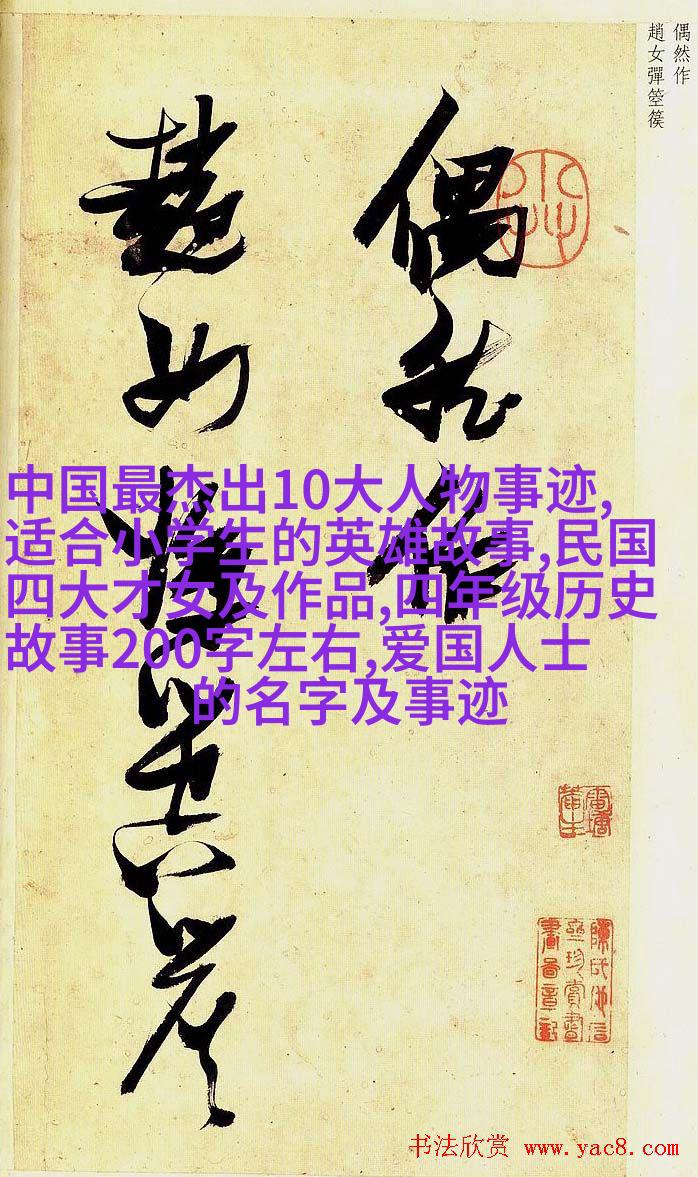 偶然作
趙女彈箜篌
偶然作
趙女彈箜篌
中国最杰出10大人物事迹,
适合小学生的英雄故事,民国
四大才女及作品,四年级历史
故事200字左右,爱国人士
的名字及事迹
书法欣赏 www.yac8.com